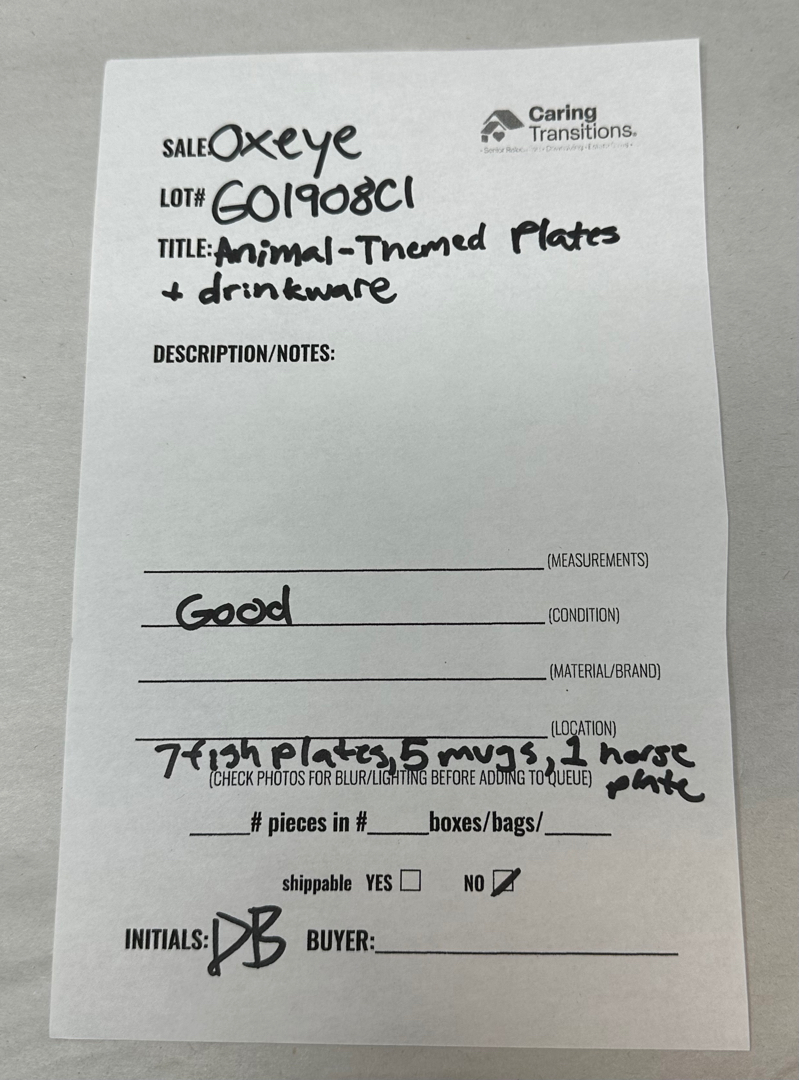 Caring
Transitions.
SALE: Oxeye
LOT# G01908C1
TITLE: Animal-Themed Plates
+ drinkware
DESCRIPTION/NOTES:
(MEASUREMENTS)
Good (CONDITION)
(MATERIAL/BRAND)
(LOCATION)
7 fish plates, 5 mugs, 1 horse
plate
(CHECK PHOTOS FOR BLUR/LIGHTING BEFORE ADDING TO QUEUE)
_____# pieces in #_____boxes/bags/______
shippable YES ☐ NO ☑
INITIALS: DB BUYER: